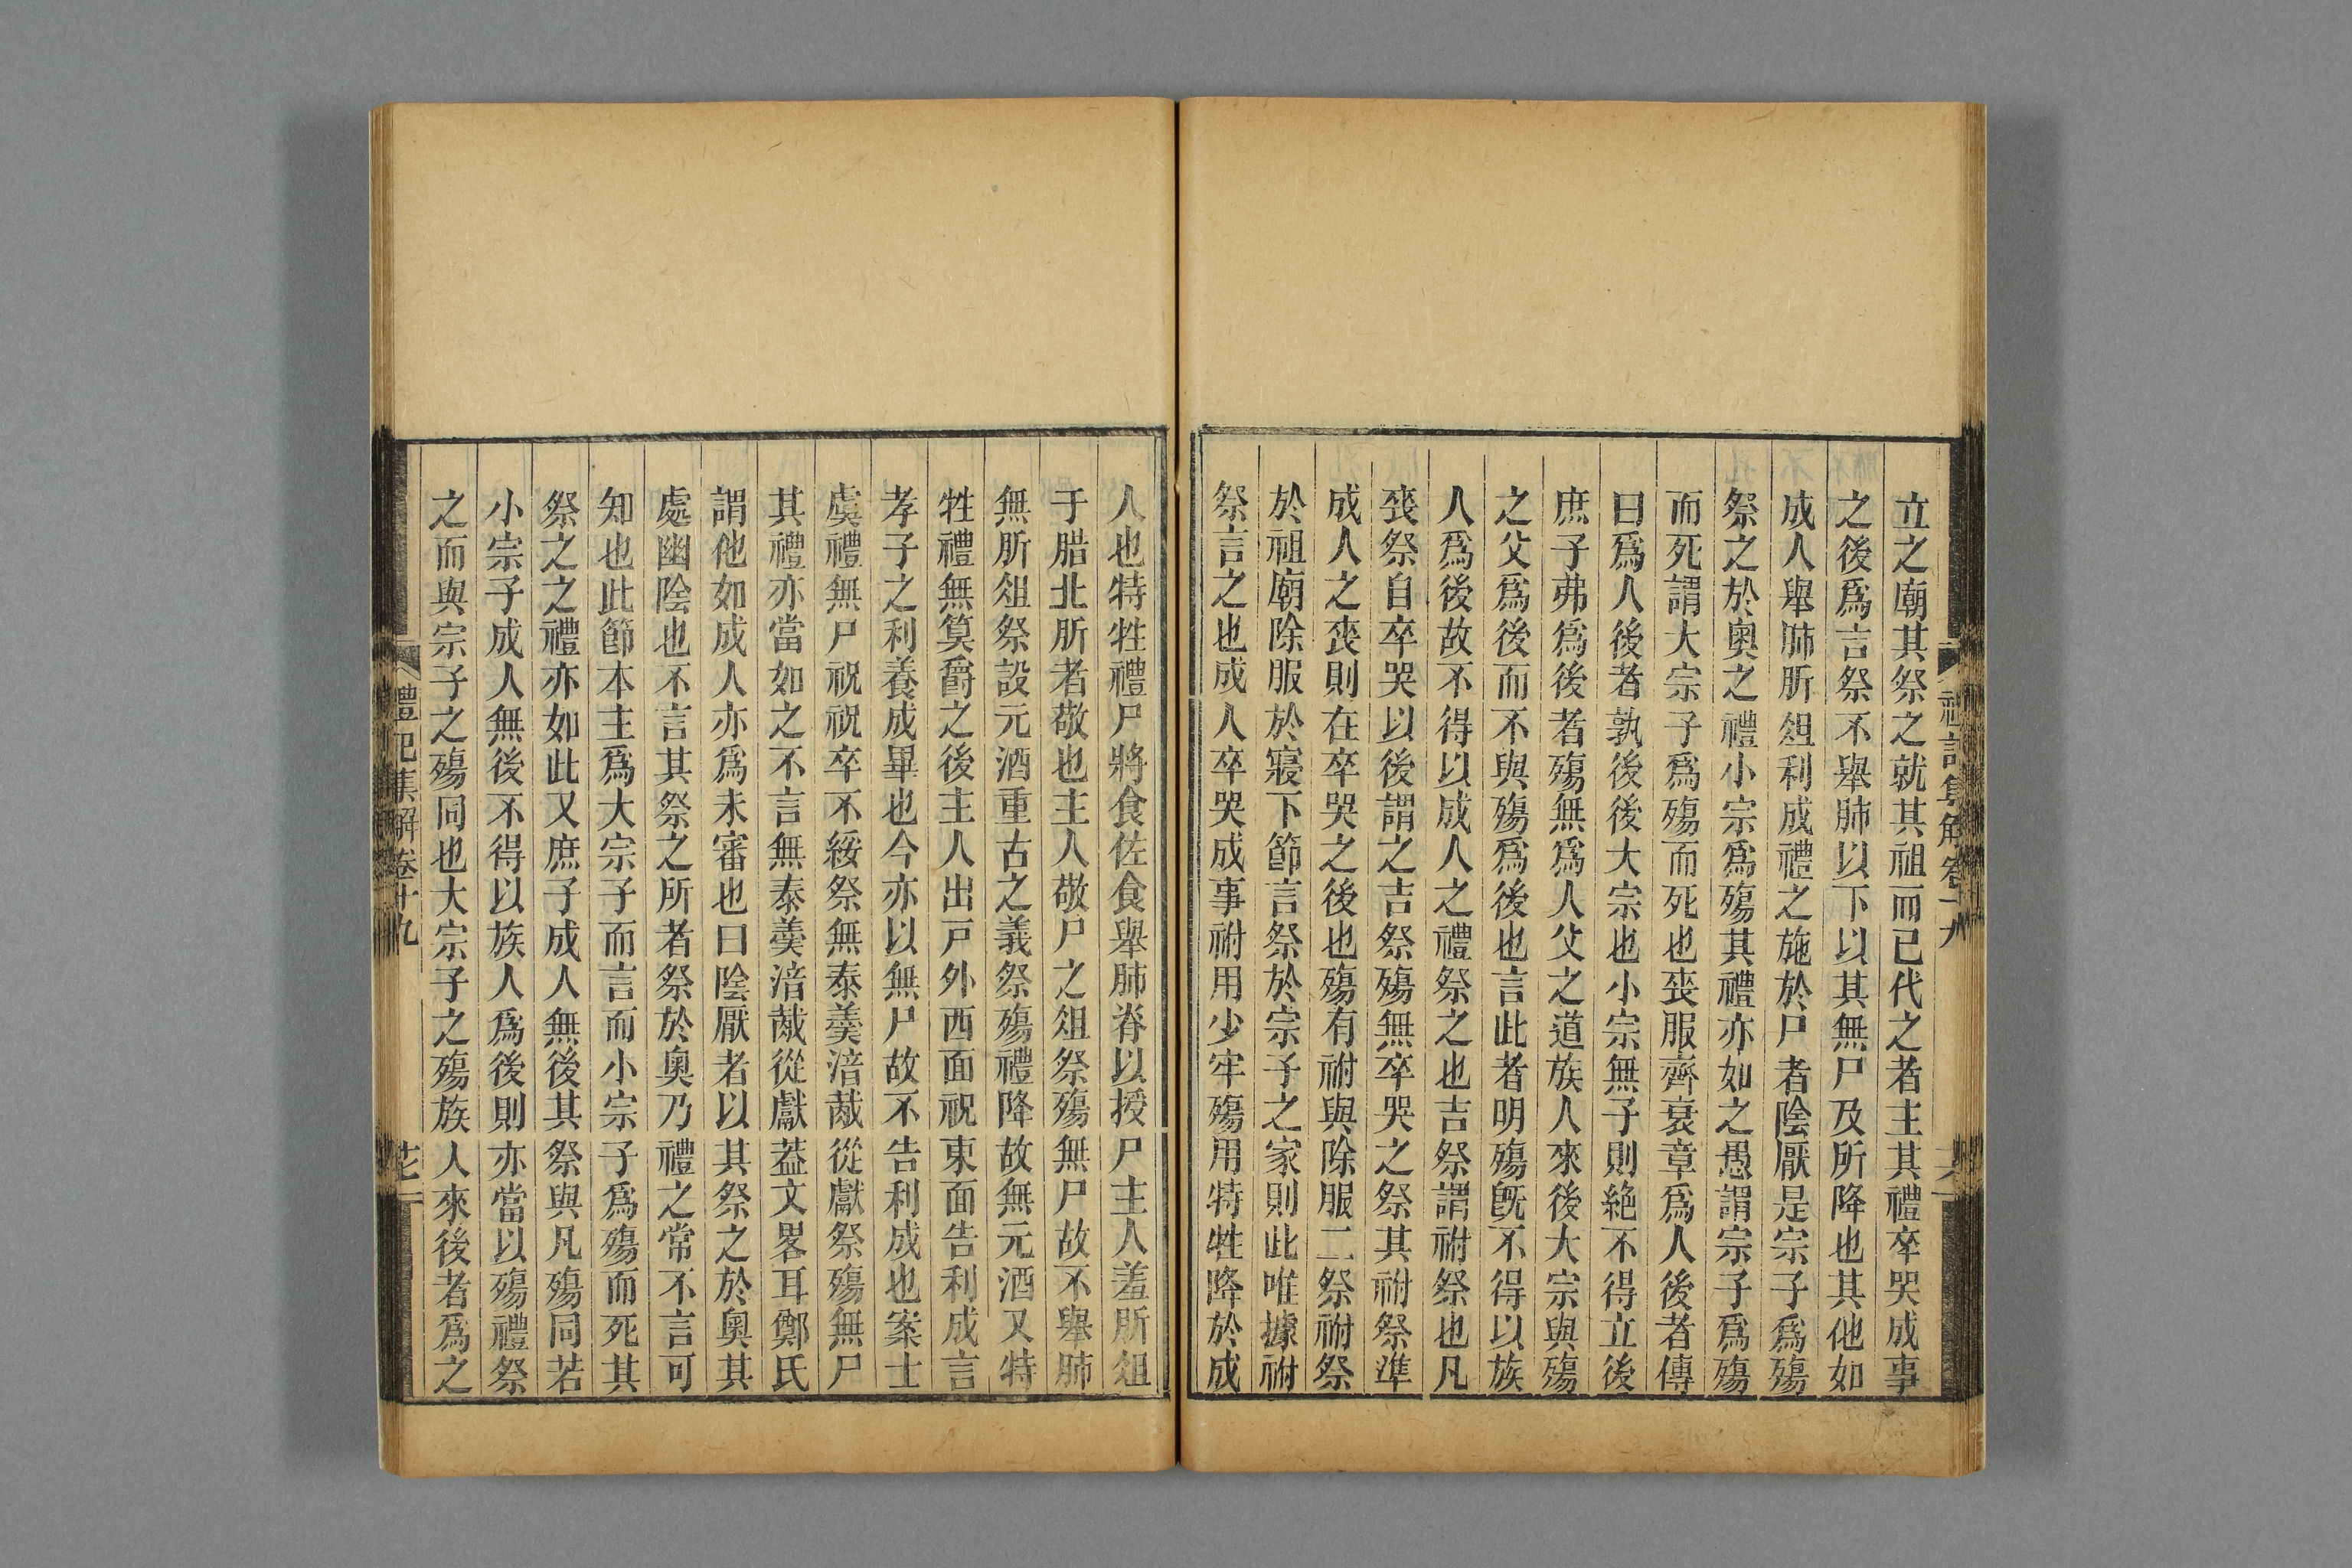 立之廟其祭之就其祖而已代之者主其禮卒哭成事
之後爲言祭不舉肺以下以其無尸及所降也其他如
成人舉肺肵俎利成禮之施於尸者陰厭是宗子爲殤
祭之於奧之禮小宗爲殤其禮亦如之愚謂宗子爲殤
而死謂大宗子爲殤而死也喪服齊衰章爲人後者傳
曰爲人後者孰後後大宗也小宗無子則絶不得立後
庶子弗爲後者殤無爲人父之道族人來後大宗與殤
之父爲後而不與殤爲後也言此者明殤旣不得以族
人爲後故不得以成人之禮祭之也吉祭謂祔祭也凡
喪祭自卒哭以後謂之吉祭殤無卒哭之祭其祔祭準
成人之喪則在卒哭之後也殤有祔與除服二祭祔祭
於祖廟除服於寢下節言祭於宗子之家則此唯據祔
祭言之也成人卒哭成事祔用少牢殤用特牲降於成
人也特牲禮尸將食佐食舉肺脊以授尸主人羞肵俎
于腊北肵者敬也主人敬尸之俎祭殤無尸故不舉肺
無肵俎祭設元酒重古之義祭殤禮降故無元酒又特
牲禮無筭爵之後主人出戸外西面祝東面告利成言
孝子之利養成畢也今亦以無尸故不告利成也案士
虞禮無尸祝祝卒不綏祭無泰羹湆胾從獻祭殤無尸
其禮亦當如之不言無泰羹湆胾從獻葢文畧耳鄭氏
謂他如成人亦爲未審也曰陰厭者以其祭之於奧其
處幽陰也不言其祭之所者祭於奧乃禮之常不言可
知也此節本主爲大宗子而言而小宗子爲殤而死其
祭之之禮亦如此又庶子成人無後其祭與凡殤同若
小宗子成人無後不得以族人爲後則亦當以殤禮祭
之而與宗子之殤同也大宗子之殤族人來後者爲之
禮記集解卷十九